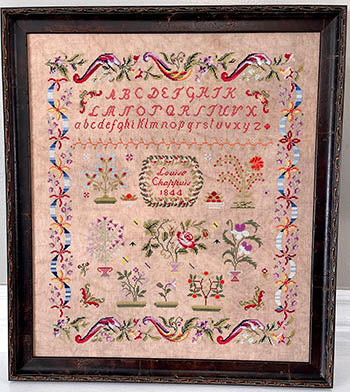 A B C D E F G H I K
L M N O P Q R S T U V X
a b c d e f g h i k l m n o p q r s t u v x y z
Louise
Chappuis
1844